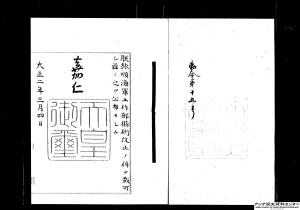 勅令第十五号
朕旅順海軍工作部條例改正ノ件ヲ裁可
シ茲ニ之ヲ公布セシム
嘉仁
天皇
御璽
大正二年三月四日
アジア歴史資料センター